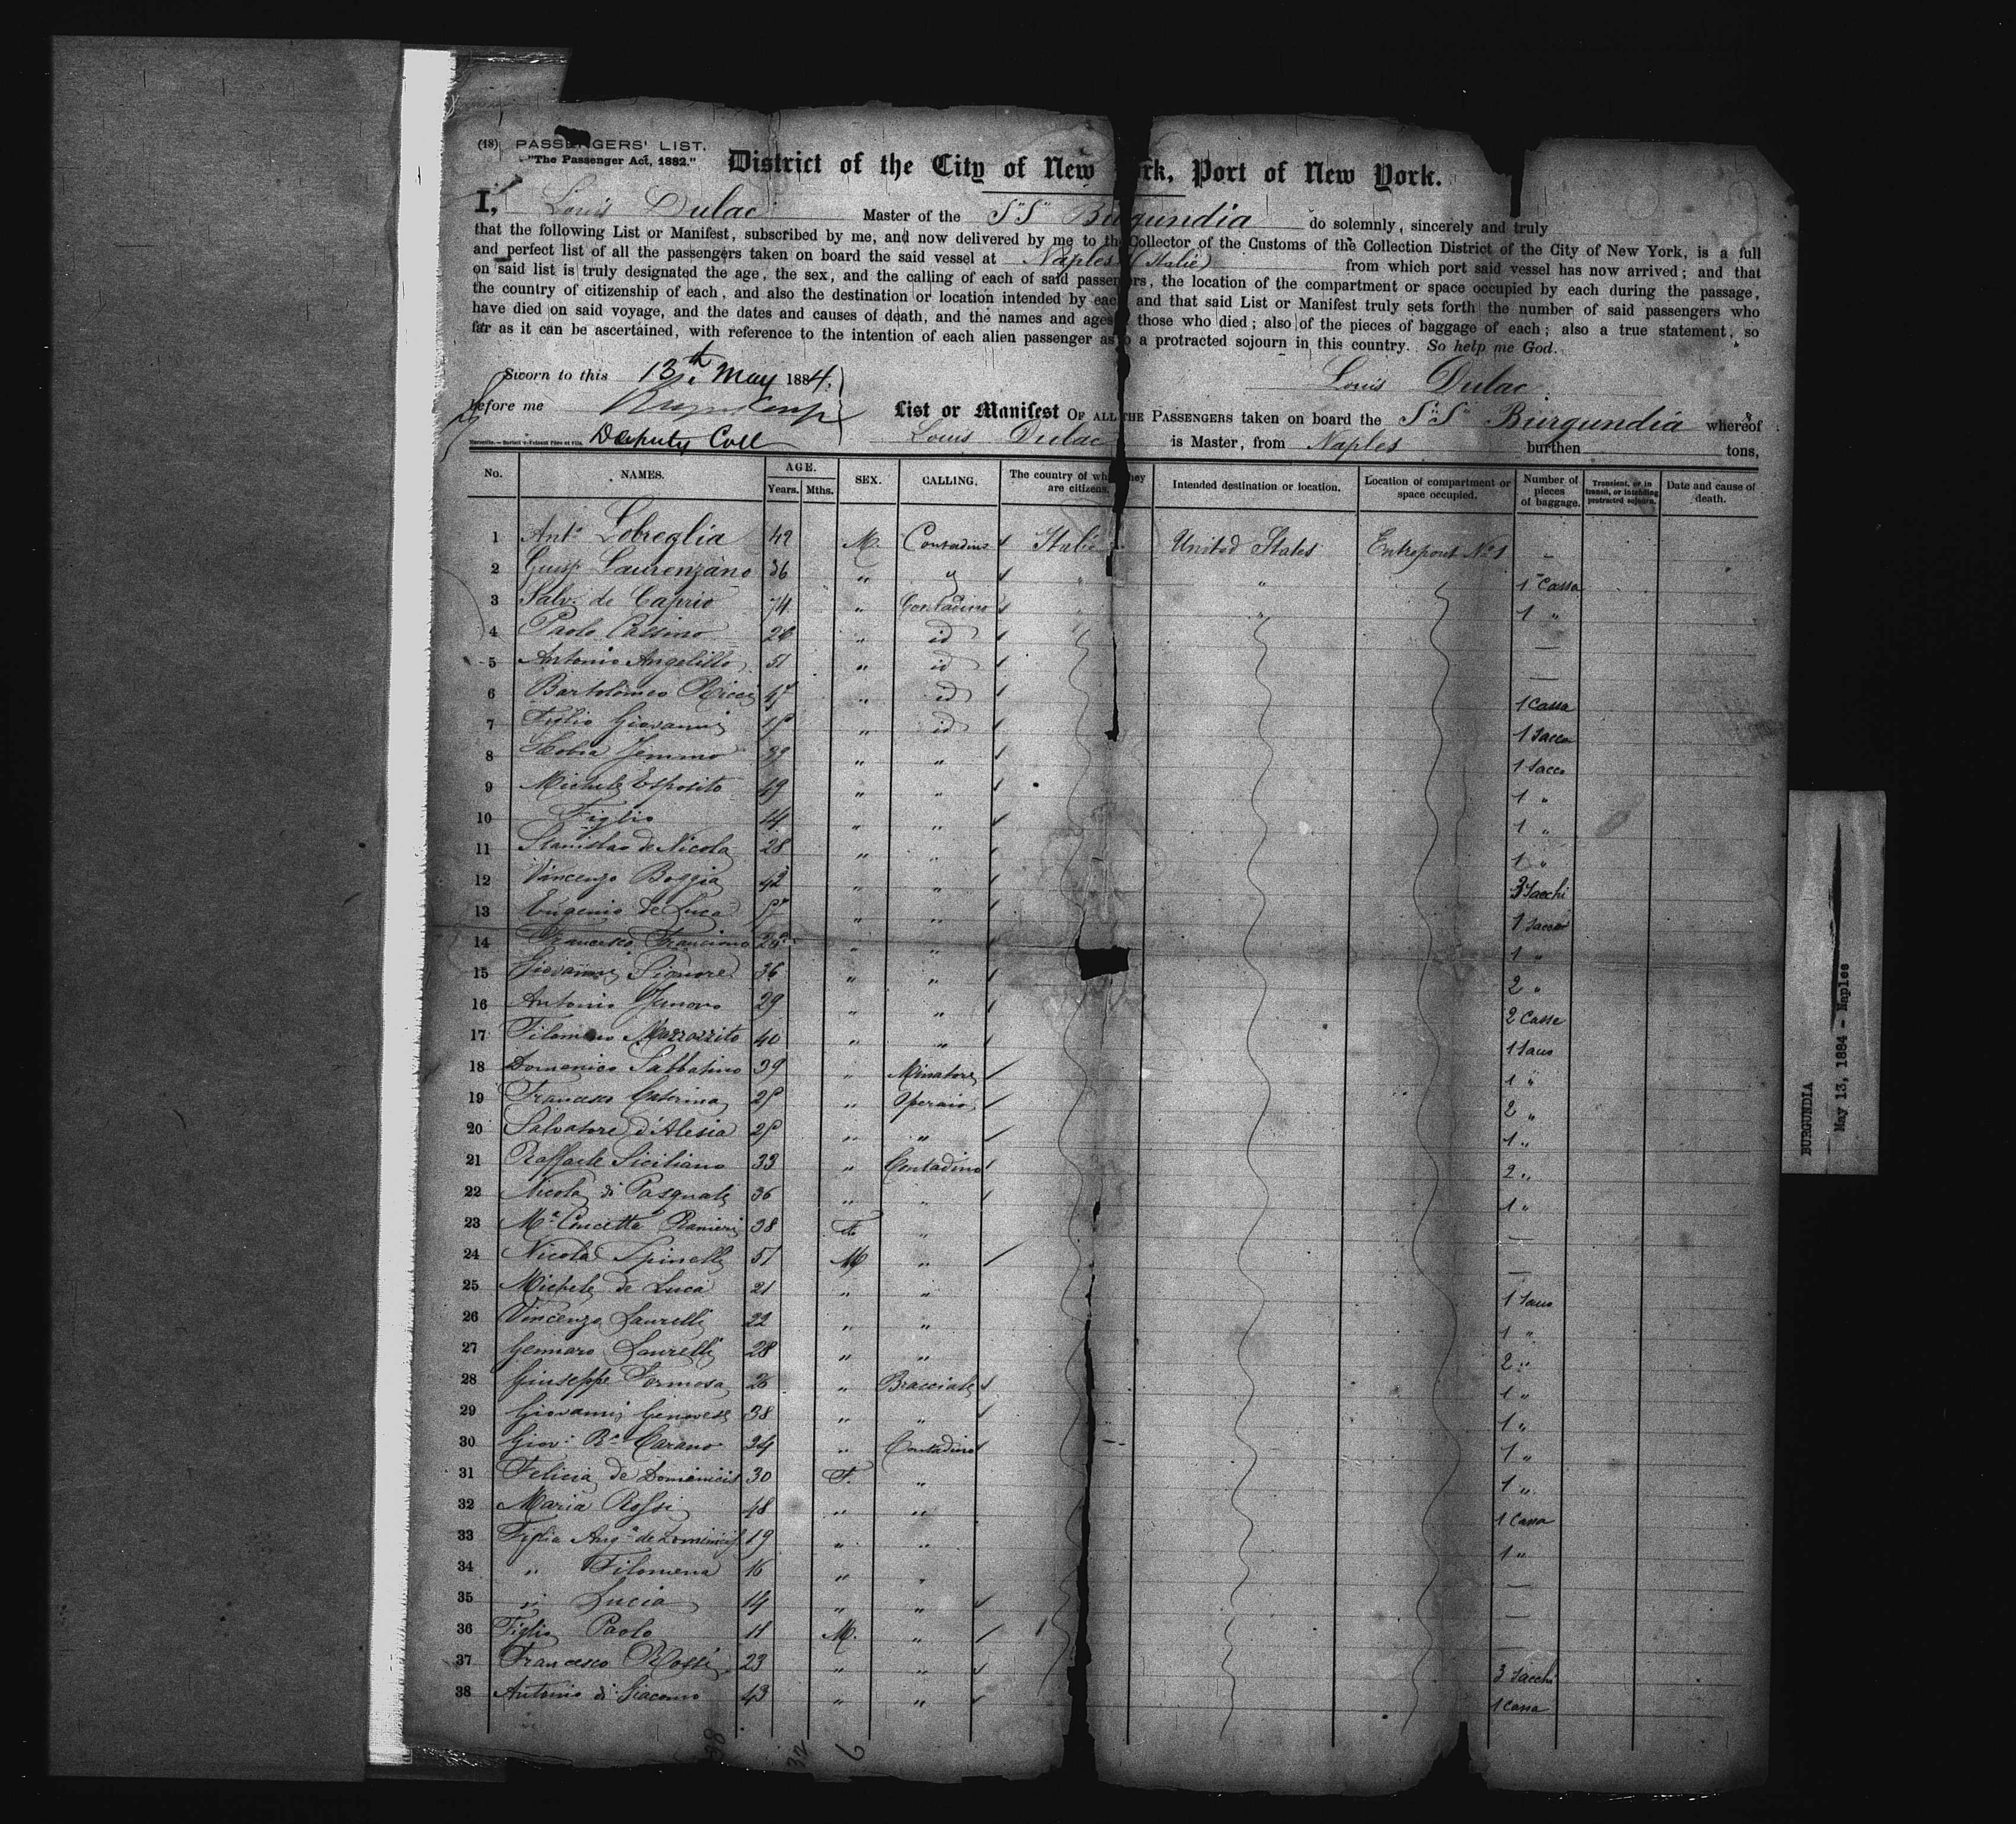 (18) PASSENGERS' LIST.
"The Passenger Act, 1882."
District of the City of New York, Port of New York.
I, Louis Dulac Master of the S"S" Burgundia do solemnly, sincerely and truly
that the following List or Manifest, subscribed by me, and now delivered by me to the Collector of the Customs of the Collection District of the City of New York, is a full
and perfect list of all the passengers taken on board the said vessel at Naples (Italie) from which port said vessel has now arrived; and that
on said list is truly designated the age, the sex, and the calling of each of said passengers, the location of the compartment or space occupied by each during the passage,
the country of citizenship of each, and also the destination or location intended by each and that said List or Manifest truly sets forth the number of said passengers who
have died on said voyage, and the dates and causes of death, and the names and ages those who died; also of the pieces of baggage of each; also a true statement, so
far as it can be ascertained, with reference to the intention of each alien passenger as to a protracted sojourn in this country. So help me God.
Sworn to this 13th May 1884.
Louis Dulac
before me
Deputy Coll
List or Manifest OF ALL THE PASSENGERS taken on board the S"S" Burgundia whereof
Louis Dulac is Master, from Naples burthen tons,
No. NAMES. AGE. Years. Mths. SEX. CALLING. The country of which they are citizens. Intended destination or location. Location of compartment or space occupied. Number of pieces of baggage. Transient, or in transit, or intending protracted sojourn. Date and cause of death.
1 Anto Lobreglia 42 M. Contadino Italie United States Entrepont No 1 –
2 Giusp. Laurenzano 36 " " " " 1 Cassa
3 Salv. de Caprio 74 " Contadino " " 1 "
4 Paolo Cassino 26 " id —
5 Antonio Angelillo 51 " id —
6 Bartolomeo Ricci " id 1 Cassa
7 Figlio Giovanni " id 1 Sacco
8 Jemmo " " 1 Sacco
9 Michele Esposito 49 " " 1 "
10 Figlio 14 " " 1 "
11 Stanislao de Nicola 28 " " 1 "
12 Vincenzo Boggia 42 " " 3 Sacchi
13 Eugenio de Luca " " 1 Sacco
14 Francesco Franciono " " 1 "
15 Giovanni Signore 36 " " 2 "
16 Antonio Jenovo 29 " " 2 Casse
17 Filomeno Mazzozzito 40 " " 1 Sacco
18 Domenico Sabbatino 39 " Minatore 1 "
19 Francesco Caterina " Operaio 2 "
20 Salvatore d'Alesia " " 1 "
21 Raffaele Siciliano 33 " Contadino 2 "
22 Nicola di Pasquale 36 " " 1 "
23 Ma Concetta Ranieri 38 F. " —
24 Nicola Spinelli 51 M " —
25 Michele de Luca 21 " " 1 Sacco
26 Vincenzo Laurelli 22 " " 1 "
27 Gennaro Laurelli 28 " " 2 "
28 Giuseppe Formosa 26 " Bracciale 1 "
29 Giovanni Genovese 38 " " 1 "
30 Giov. Ba Carano 34 " Contadino 1 "
31 Felicia de Domenicis 30 F. " 1 "
32 Maria Rossi 48 " " 1 Cassa
33 Figlia Anga de Domenicis 19 " " 1 "
34 " Filomena 16 " " —
35 " Lucia 14 " " —
36 Figlio Paolo 11 M. " —
37 Francesco Rossi 23 " " 3 Sacchi
38 Antonio di Giacomo 43 " " 1 Cassa
38 32
BURGUNDIA
May 13, 1884 - Naples